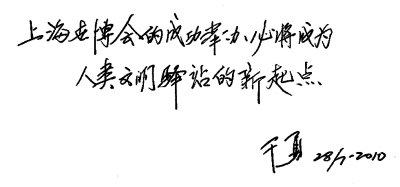 上海世博会的成功举办必将成为
人类文明驿站的新起点
于勇 28/7-2010